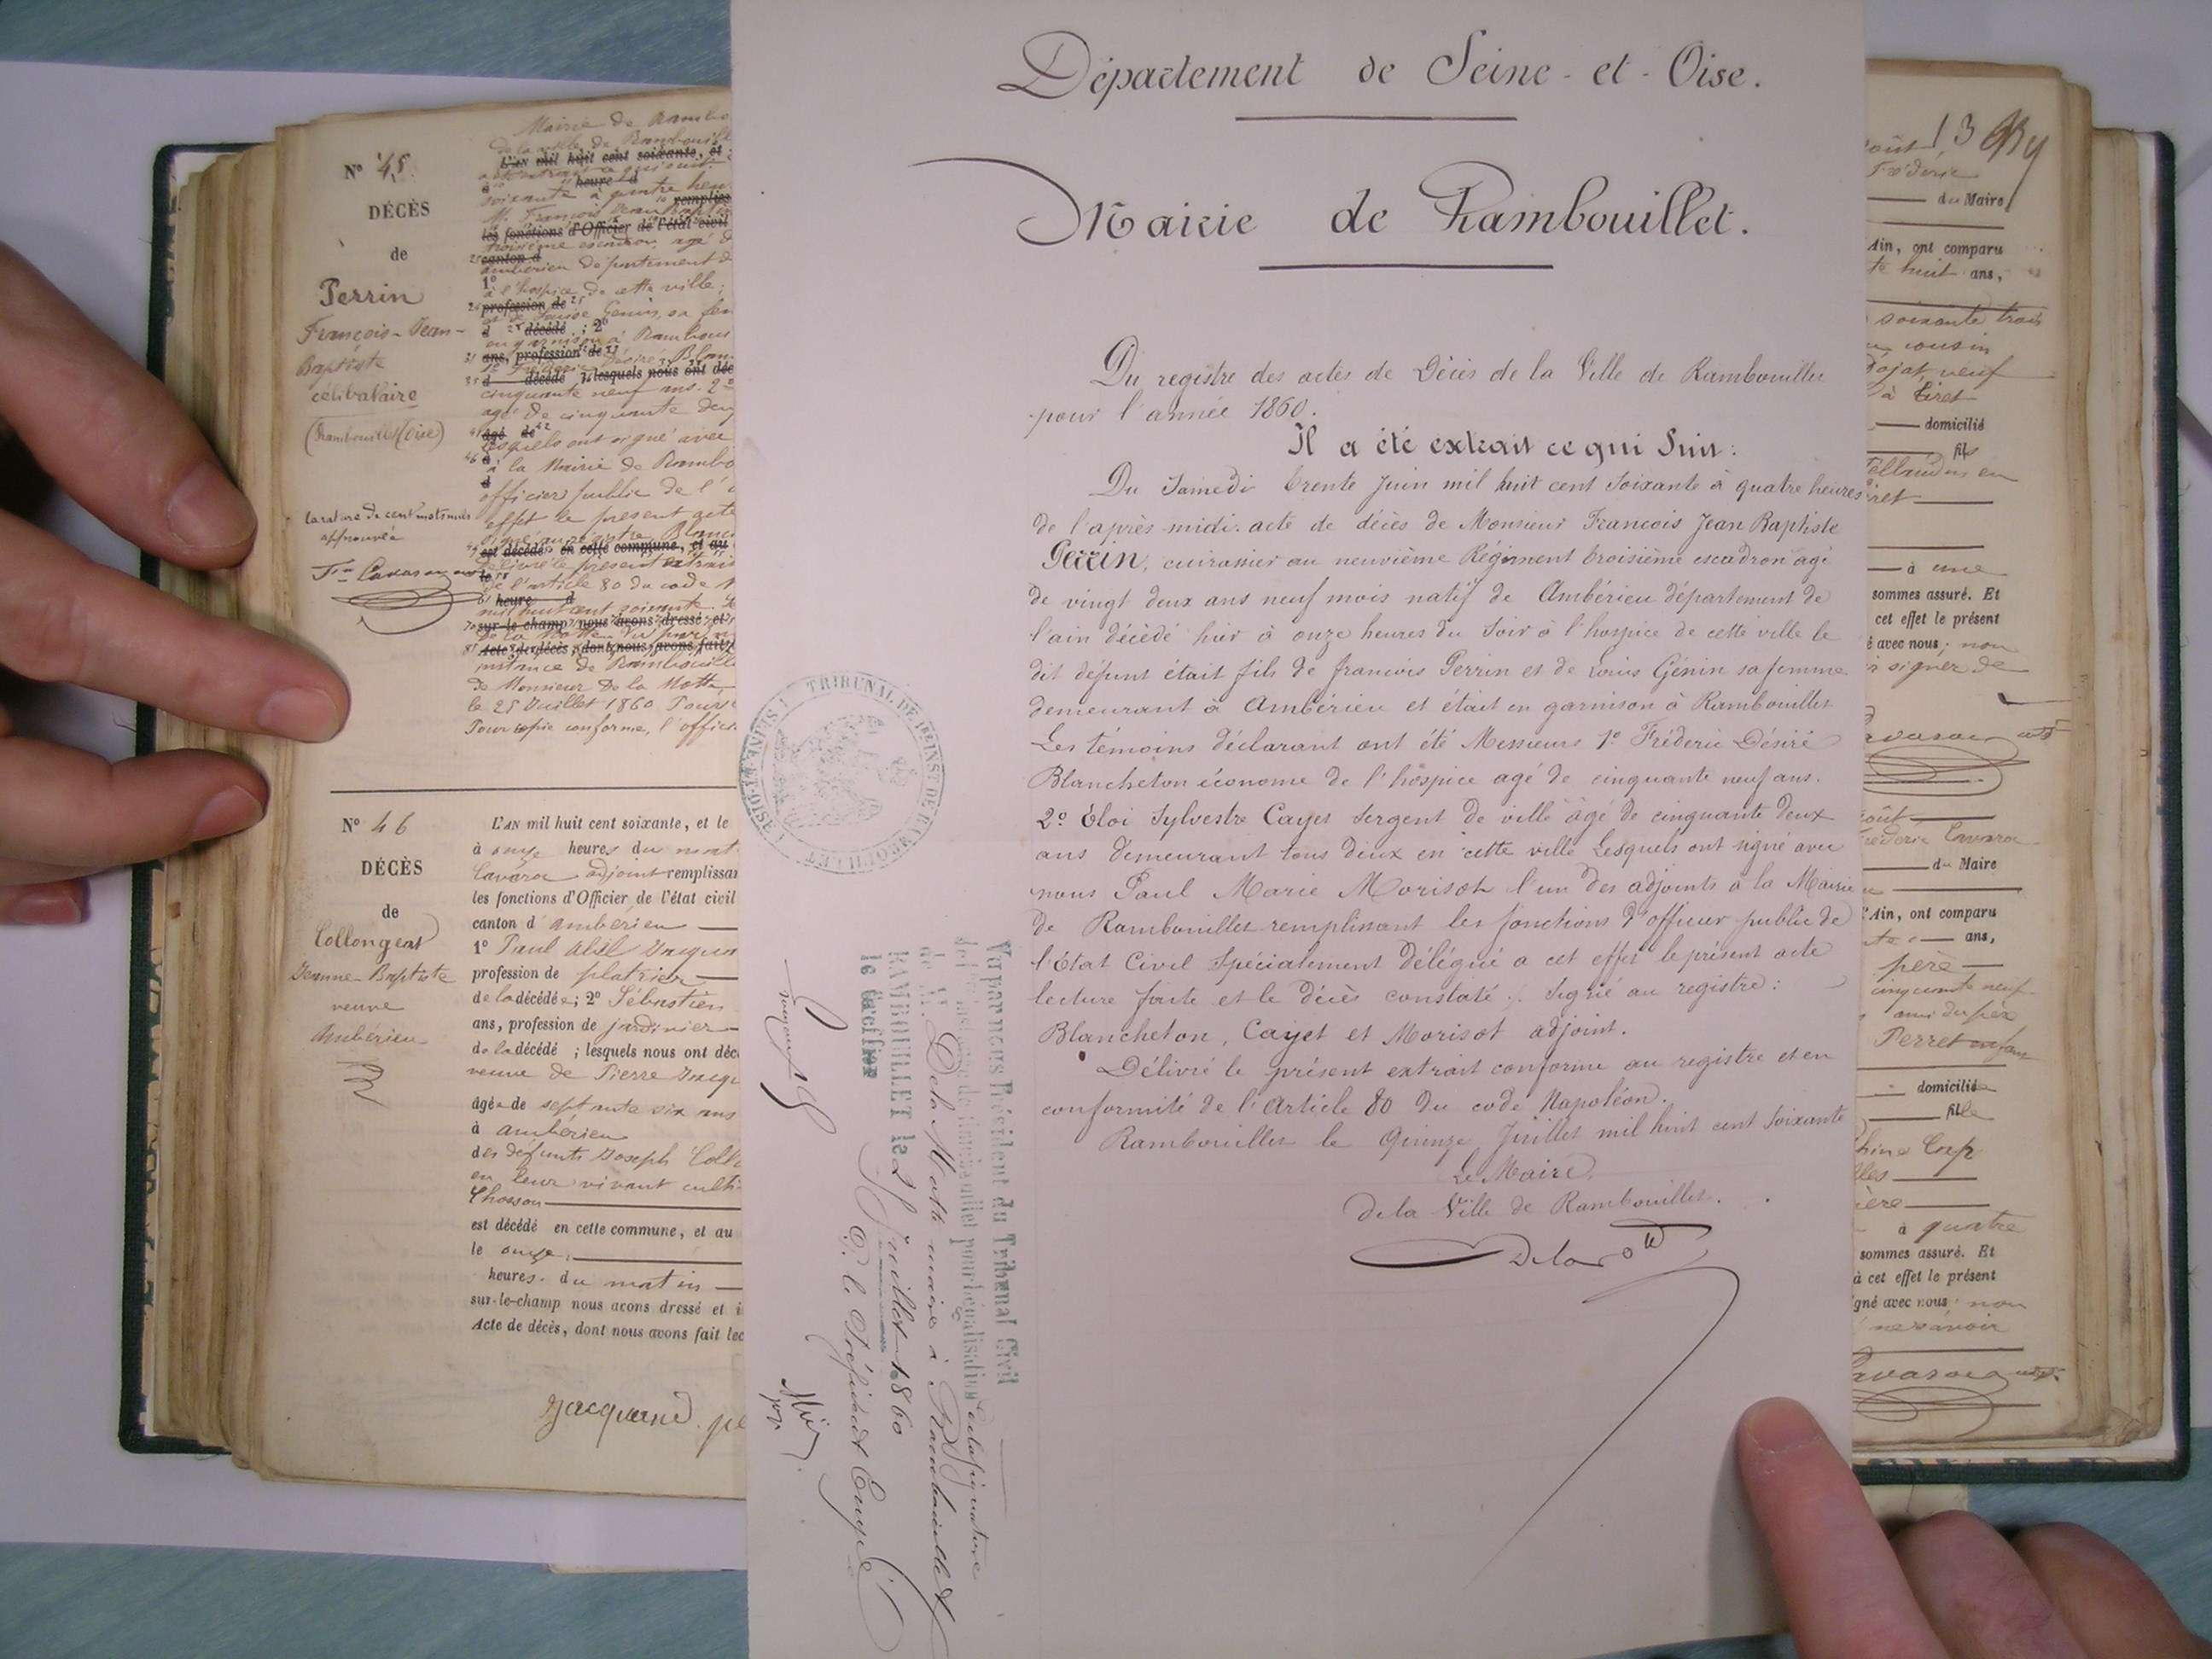 Département de Seine-et-Oise.
Mairie de Rambouillet.
Du registre des actes de Décès de la Ville de Rambouillet
pour l'année 1860.
Il a été extrait ce qui suit:
Du Samedi trente Juin mil huit cent soixante à quatre heures
de l'après-midi. acte de décès de Monsieur Francois Jean Baptiste
Perrin, cuirassier au neuvième Régiment troisième escadron agé
de vingt deux ans neuf mois natif de Ambérieu département de
l'ain décédé hier à onze heures du Soir à l'hospice de cette ville le
dit défunt était fils de francois Perrin et de Louis Génin sa femme
demeurant à Ambérieu et était en garnison à Rambouillet
Les témoins déclarant ont été Messieurs 1º Fréderic Désiré
Blancheton économe de l'hospice agé de cinquante neuf ans.
2º Eloi Sylvestre Cayet Sergent de ville âgé de cinquante deux
ans demeurant tous deux en cette ville Lesquels ont signé avec
nous Paul Marie Morisot l'un des adjoints à la Mairie
de Rambouillet remplissant les fonctions d'officier public de
l'Etat Civil Spécialement délégué a cet effet le présent acte
lecture faite et le décès constaté. Signé au registre:
Blancheton, Cayet et Morisot adjoint.
Délivré le présent extrait conforme au registre et en
conformité de l'Article 80 du code Napoléon.
Rambouillet le Quinze Juillet mil huit cent soixante
Le Maire
de la Ville de Rambouillet.
Delamotte
TRIBUNAL DE 1re INST DE RAMBOUILLET
(SEINE-ET-OISE)
Vu par nous Président du Tribunal Civil
pour légalisation de la signature
de M. De la Motte maire à Rambouillet
RAMBOUILLET le 25 Juillet 1860
le Greffier
Nº 45
DÉCÈS
de
Perrin
François-Jean-
Baptiste
célibataire
(Rambouillet (Oise)
la rature de cent mots nuls
approuvée
Mairie de Rambo
de la ville de Rambouill
L'AN mil huit cent soixante, et
heure d
soixante à quatre heu
remplis
M. François Jean Bap
les fonctions d'Officier de l'état civil
troisième escadron, agé d
canton d
ambérieu département d
1º
à l'hospice de cette ville;
profession de
et de Louise Genin, sa fem
d décédé ; 2º
en garnison à Ramboui
ans, profession de
1º Fréderic Désiré Blan
d décédé ; lesquels nous ont déc
cinquante neuf ans. 2º
agé de cinquante deu
âgé de
lesquels ont signé avec
à la Mairie de Rambo
officier public de l'
effet le présent acte
signé au registre, Blanc
est décédé en cette commune, et au
délivré le présent extrait
de l'article 80 du code N
heure d
mil huit cent soixante. Le
sur-le-champ nous avons dressé et
de la Motte. Vu par
Acte de décès, dont nous avons fait
instance de Rambouille
de Monsieur De la Motte
le 25 Juillet 1860
Pour copie conforme, l'offici
Nº 46
DÉCÈS
de
Collonges
Jeanne-Baptiste
veuve
Ambérieu
L'AN mil huit cent soixante, et le
à onze heures du mat
Cavaroc adjoint remplissa
les fonctions d'Officier de l'état civil
canton d'ambérieu
1º Paul Abel Jacquin
profession de platrier
de la décédée; 2º Sébastien
ans, profession de jardinier
de la décédé ; lesquels nous ont déc
veuve de Pierre Jacqu
âgée de septante six ans
à ambérieu
des défunts Joseph Coll
en leur vivant culti
Chosson
est décédé en cette commune, et au
le onze
heures du matin
sur-le-champ nous avons dressé et
Acte de décès, dont nous avons fait lec
13
août
Fréderic
du Maire
l'Ain, ont comparu
te huit ans,
soixante trois
cousin
veuf
domicilié
fils
à une
sommes assuré. Et
cet effet le présent
é avec nous; non
signer de
août
Fréderic Cavaroc
du Maire
l'Ain, ont comparu
ans,
père
cinquante neuf
ami du père
Perret enfant
domiciliée
fille
à quatre
sommes assuré. Et
à cet effet le présent
gné avec nous; non
ne savoir